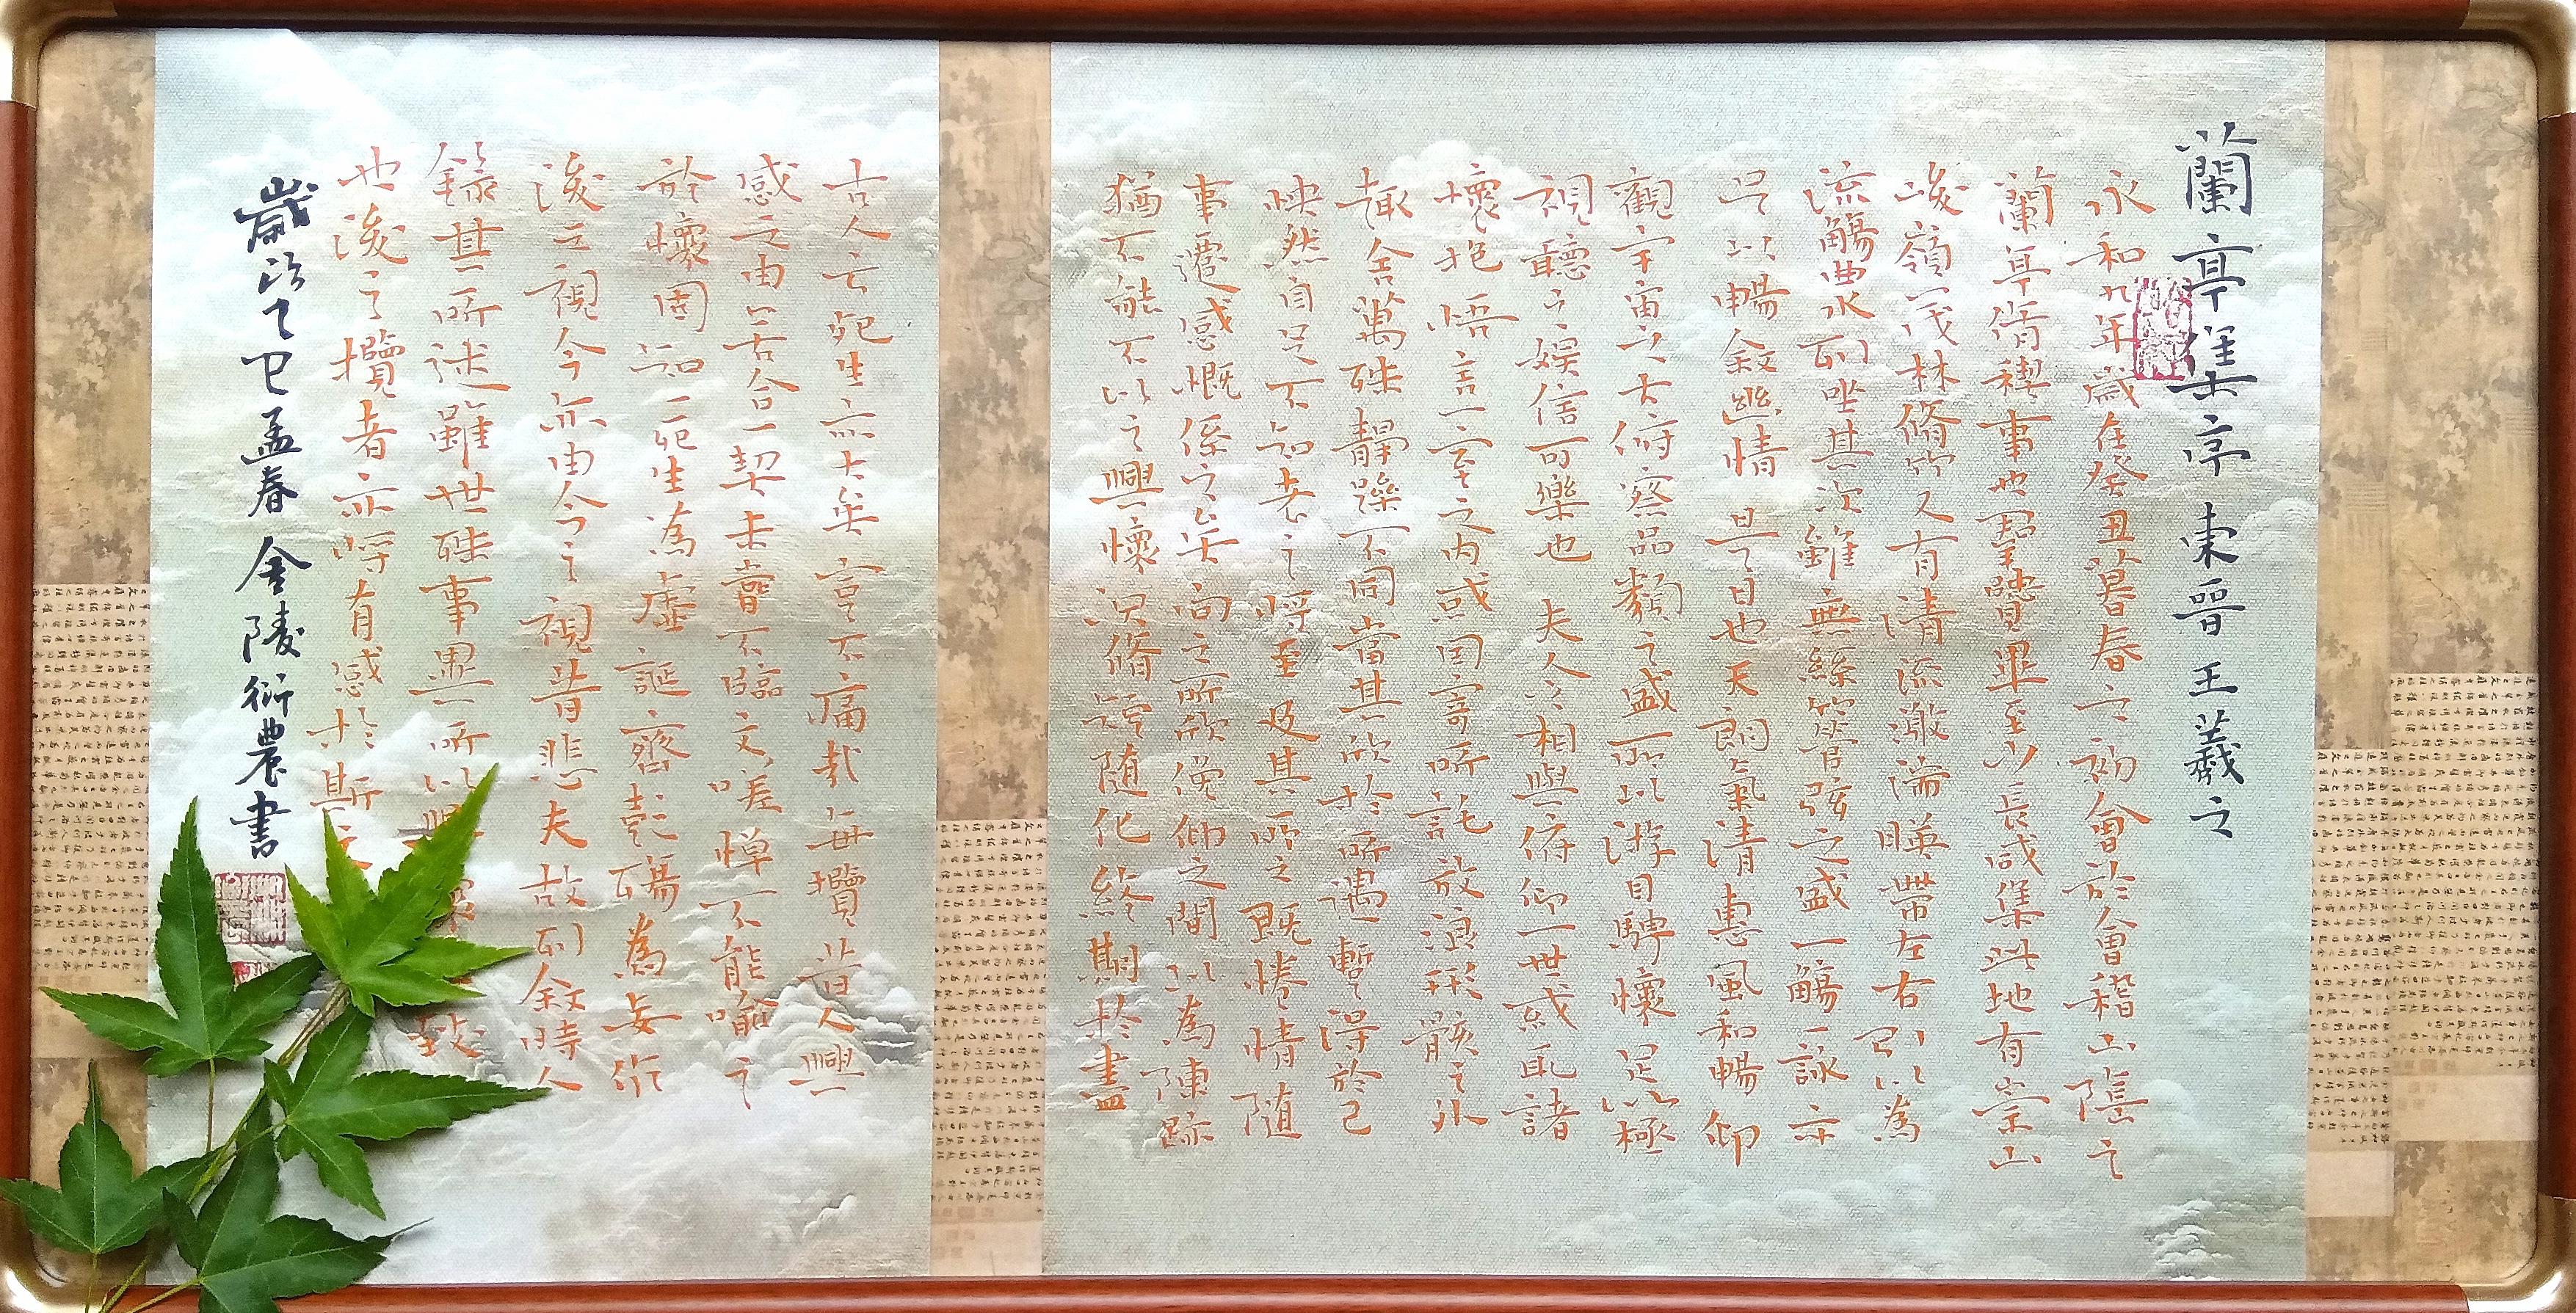 蘭亭集亭 東晉 王羲之
永和九年歲在癸丑暮春之初會於會稽山陰之
蘭亭脩禊事也羣賢畢至少長咸集此地有崇山
峻嶺茂林脩竹又有清流激湍暎帶左右引以為
流觴曲水列坐其次雖無絲竹管弦之盛一觴一詠亦
足以暢敘幽情 是日也天朗氣清惠風和暢仰
觀宇宙之大俯察品類之盛所以游目騁懷足以極
視聽之娛信可樂也 夫人之相與俯仰一世或取諸
懷抱悟言一室之內或因寄所託放浪形骸之外
趣舍萬殊靜躁不同當其欣於所遇暫得於己
怏然自足不知老之將至及其所之既惓情隨
事遷感慨係之矣向之所欣俛仰之間以為陳跡
猶不能不以之興懷況脩短隨化終期於盡
古人云死生亦大矣豈不痛哉每攬昔人興
感之由若合一契未嘗不臨文嗟悼不能喻之
於懷固知一死生為虛誕齊彭殤為妄作
後之視今亦由今之視昔悲夫故列敘時人
錄其所述雖世殊事異所以興懷致
也後之攬者亦將有感於斯文
歲次乙巳孟春金陵衍農書